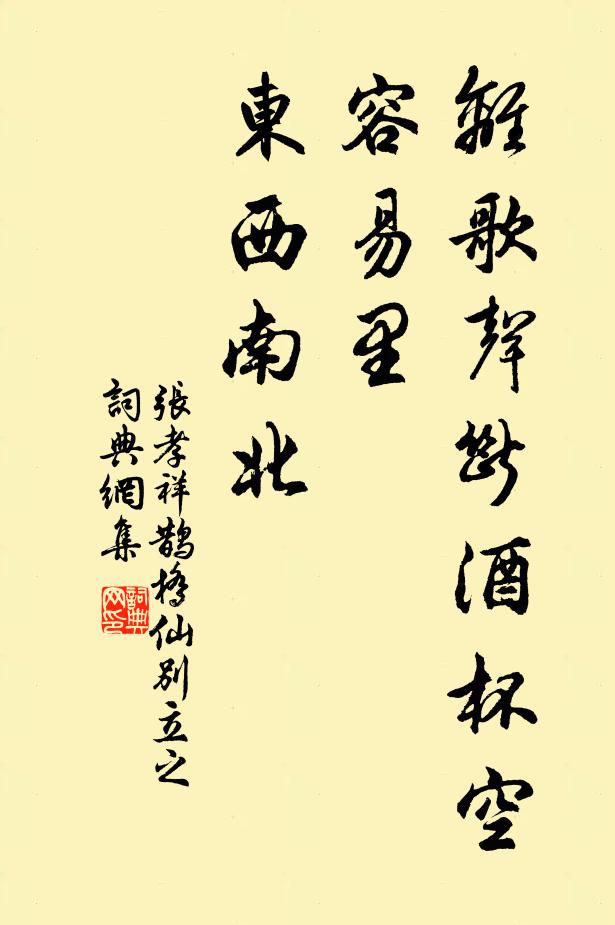 離歌聲斷酒杯空
容易里
東西南北
張孝祥鵲橋仙別立之
詞典網集
詞典
网印